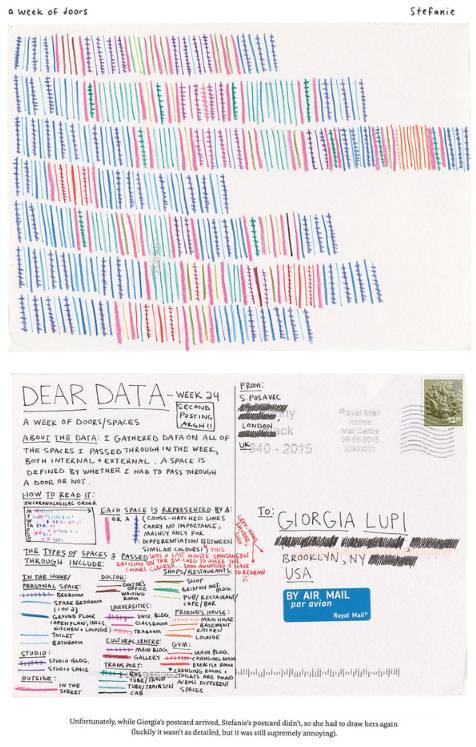 a week of doors
Stefanie
DEAR DATA - WEEK 24
SECOND
POSTING
ARGH!!
A WEEK OF DOORS/SPACES
ABOUT THE DATA: I GATHERED DATA ON ALL OF
THE SPACES I PASSED THROUGH IN THE WEEK,
BOTH INTERNAL + EXTERNAL. A SPACE IS
DEFINED BY WHETHER I HAD TO PASS THROUGH
A DOOR OR NOT.
HOW TO READ IT:
IN CHRONOLOGICAL ORDER
EACH SPACE IS REPRESENTED BY A:
OR A
(CROSS-HATCHED LINES
CARRY NO IMPORTANCE,
MAINLY ONLY FOR
DIFFERENTIATION BETWEEN
SIMILAR COLOURS)
THIS
WAS A LAST MINUTE SPONTANEOUS
DECISION
THE TYPES OF SPACES I PASSED
THROUGH INCLUDE:
IN THE HOME/
PERSONAL SPACE:
BEDROOM
SPARE BEDROOM
(1 OF 2)
GROUND FLOOR
(OPEN PLAN, INCL.
KITCHEN + LOUNGE)
TOILET
BATHROOM
STUDIO:
STUDIO BLDG.
STUDIO SPACE
OUTSIDE:
IN THE
STREET
DOCTOR:
DOCTOR'S
OFFICE
WAITING
ROOM
UNIVERSITIES:
UNIV. BLDG
CLASSROOM
TEAROOM
CULTURAL CENTRE:
MAIN BLDG.
GALLERY
TRANSPORT:
BUS
TUBE/TRAIN
CAB
SHOPS/RESTAURANTS:
SHOP
PUB/RESTAURANT/
CAFE/BAR
FRIEND'S HOUSE:
MAIN HOUSE
BASEMENT
KITCHEN
LOUNGE
GYM:
MAIN BLDG.
CHANGING ROOM
EXERCISE ROOM
CHANGING ROOM +
TOILETS ARE FOUND
ACROSS DIFFERENT
SPACES
FROM:
S. POSAVEC
LONDON
UK
1840-2015
Royal Mail
Mail Centre
TO:
GIORGIA LUPI
BROOKLYN, NY
USA
BY AIR MAIL
par avion
Royal Mail
Unfortunately, while Giorgia's postcard arrived, Stefanie's postcard didn't, so she had to draw hers again
(luckily it wasn't as detailed, but it was still supremely annoying).